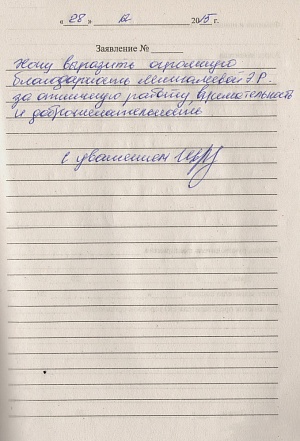 « 28 » 12 2015 г.
Заявление № ______
Хочу выразить огромную
благодарность Мингалеевой Э.Р.
за отличную работу, внимательность
и доброжелательность
с уважением